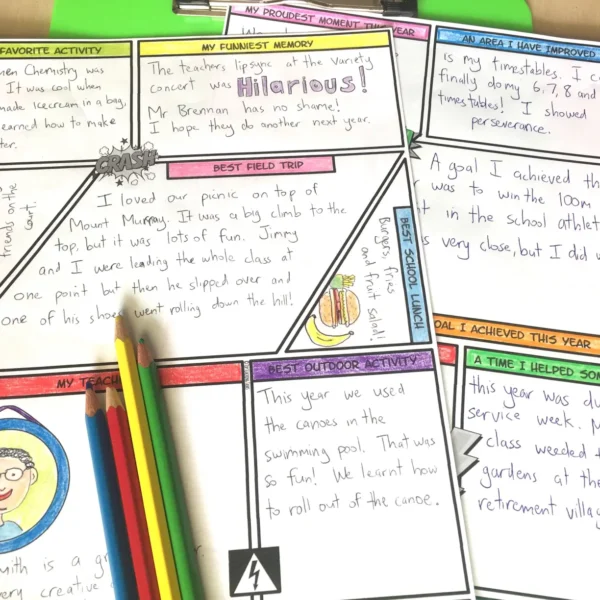 FAVORITE ACTIVITY
Chemistry was
It was cool when
made Icecream in a bag.
learned how to make
MY FUNNIEST MEMORY
The teachers lipsync at the variety
concert was Hilarious!
Mr Brennan has no shame!
I hope they do another next year.
CRASH
friends on the
BEST FIELD TRIP
I loved our picnic on top of
Mount Murray. It was a big climb to the
top, but it was lots of fun. Jimmy
and I were leading the whole class at
one point but then he slipped over and
one of his shoes went rolling down the hill!
BEST SCHOOL LUNCH
Burgers, fries
and fruit salad!
MY
is a
very creative
BEST OUTDOOR ACTIVITY
This year we used
the canoes in the
swimming pool. That was
so fun! We learnt how
to roll out of the canoe.
MY PROUDEST MOMENT THIS YEAR
AN AREA I HAVE IMPROVED
is my timestables. I
finally do my 6,7,8 and
timestables! I showed
perseverance.
A goal I achieved
was to win the 100m
in the school
very close, but I did
GOAL I ACHIEVED THIS YEAR
A TIME I HELPED
this year was
service week.
class weeded
gardens at the
retirement